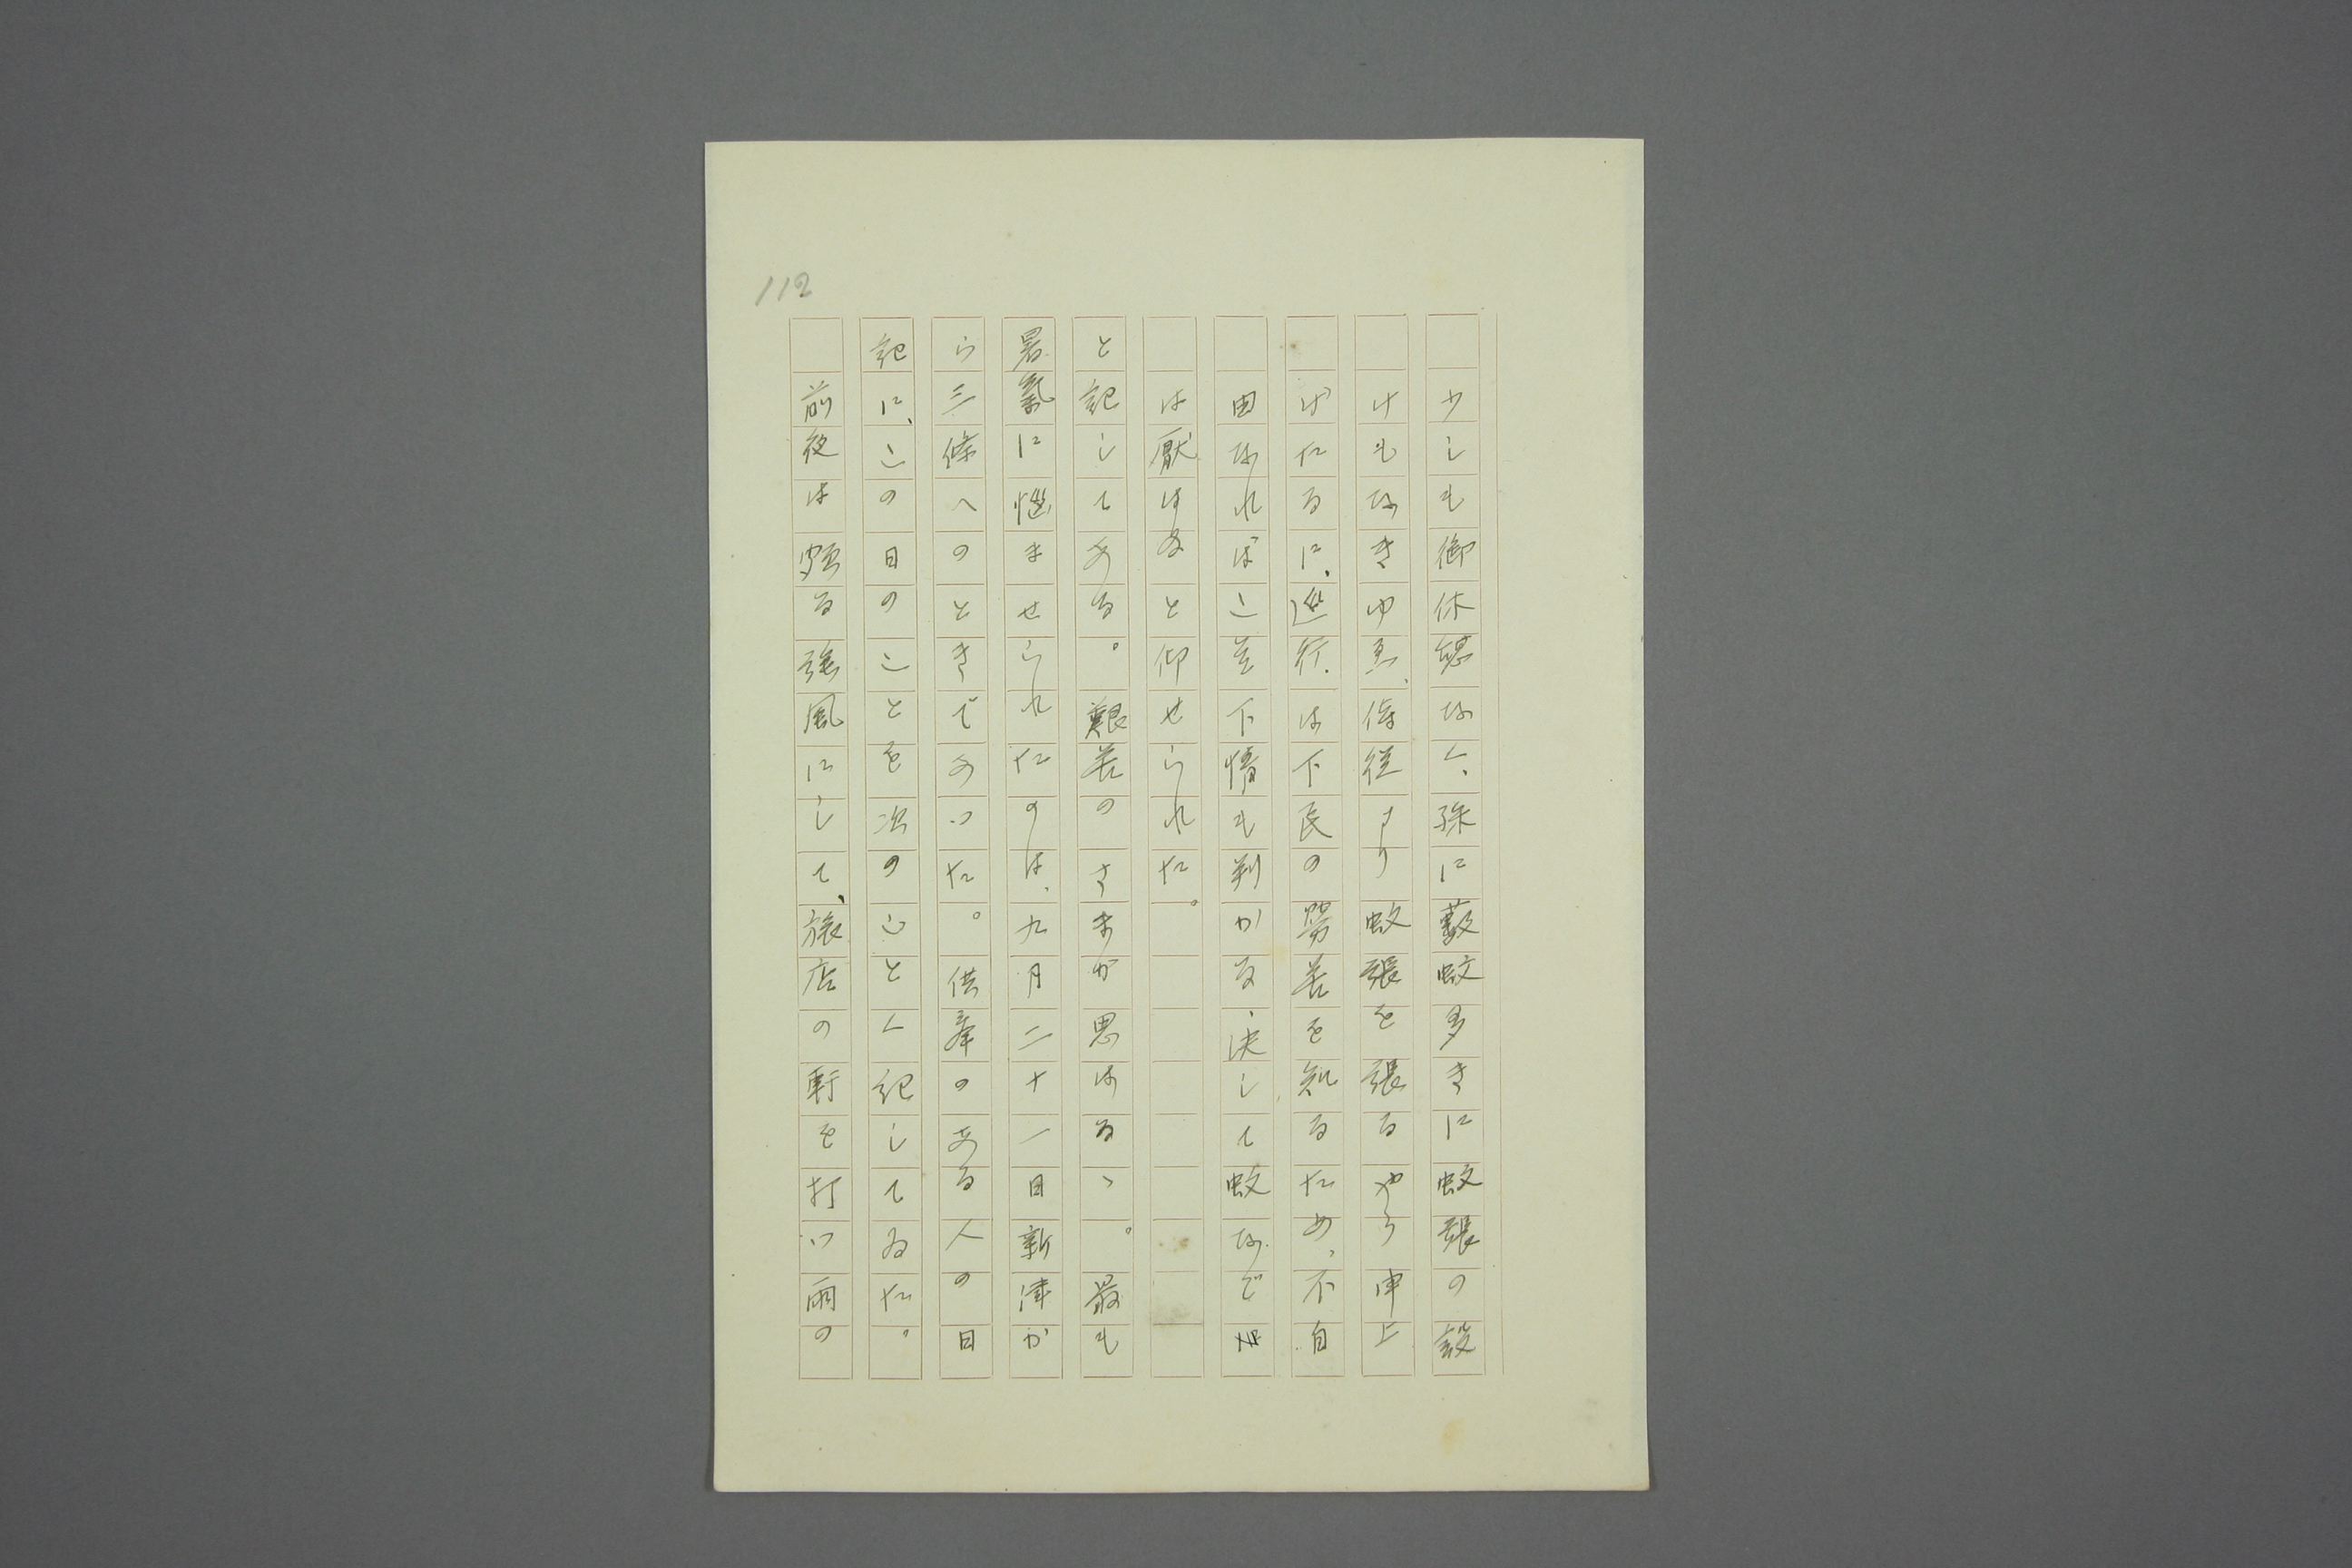 112
少しも御休憩なく、殊に藪蚊多きに蚊張の設
けもなきゆゑ、侍従より蚊張を張るやう申上
げたるに、巡行は下民の勞苦を知るため、不自
由なればこそ下情も判かる、決して蚊などを
は厭はぬと仰せられた。
と記してある。艱苦のさまが思はるゝ。最も
暑氣に惱ませられたのは、九月二十一日新津か
ら三條へのときであつた。供奉のある人の日
記に、この日のことを次のごとく紀してゐた。
前夜は頗る強風にして、旅店の軒を打つ雨の